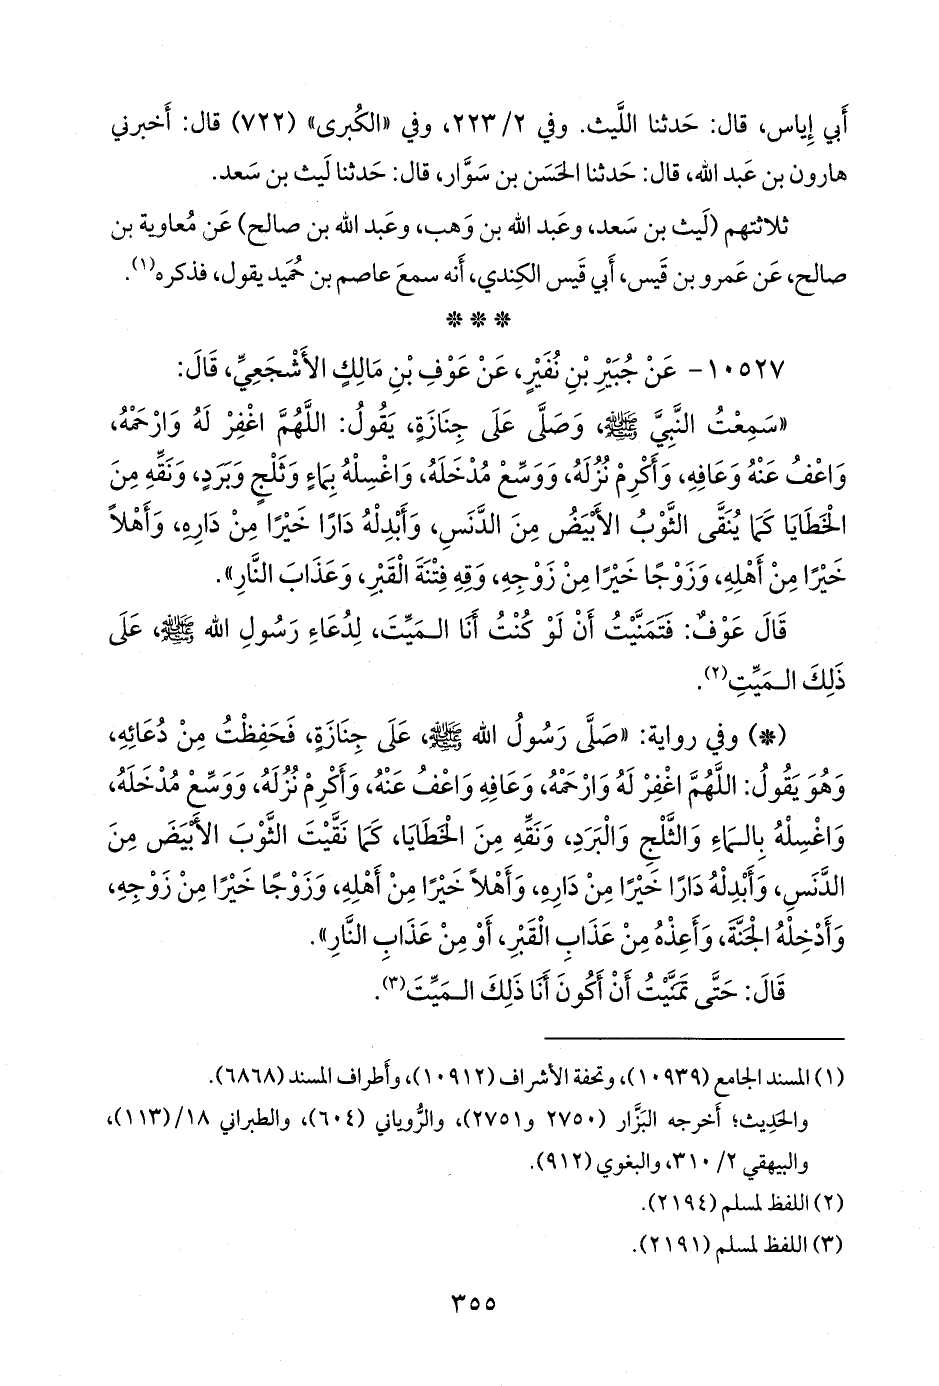 أَبي إِياس، قال: حَدثنا اللَّيث. وفي ٢/ ٢٢٣، وفي «الكُبرى» (٧٢٢) قال: أَخبرني
هارون بن عَبد الله، قال: حَدثنا الحَسَن بن سَوَّار، قال: حَدثنا لَيث بن سَعد.
ثلاثتهم (لَيث بن سَعد، وعَبد الله بن وَهب، وعَبد الله بن صالح) عَن مُعاوية بن
صالح، عَن عَمرو بن قَيس، أَبي قَيس الكِندي، أَنه سمعَ عاصم بن حُميد يقول، فذكره(١).
* * *
١٠٥٢٧- عَنْ جُبَيْرِ بْنِ نُفَيْرٍ، عَنْ عَوْفِ بْنِ مَالِكٍ الأَشْجَعِيِّ، قَالَ:
«سَمِعْتُ النَّبِيَّ ﷺ، وَصَلَّى عَلَى جِنَازَةٍ، يَقُولُ: اللَّهُمَّ اغْفِرْ لَهُ وَارْحَمْهُ،
وَاعْفُ عَنْهُ وَعَافِهِ، وَأَكْرِمْ نُزُلَهُ، وَوَسِّعْ مُدْخَلَهُ، وَاغْسِلْهُ بِمَاءٍ وَثَلْجٍ وَبَرَدٍ، وَنَقِّهِ مِنَ
الْخَطَايَا كَمَا يُنَقَّى الثَّوْبُ الأَبْيَضُ مِنَ الدَّنَسِ، وَأَبْدِلْهُ دَارًا خَيْرًا مِنْ دَارِهِ، وَأَهْلاً
خَيْرًا مِنْ أَهْلِهِ، وَزَوْجًا خَيْرًا مِنْ زَوْجِهِ، وَقِهِ فِتْنَةَ الْقَبْرِ، وَعَذَابَ النَّارِ».
قَالَ عَوْفٌ: فَتَمَنَّيْتُ أَنْ لَوْ كُنْتُ أَنَا الـمَيِّتَ، لِدُعَاءِ رَسُولِ الله ﷺ، عَلَى
ذَلِكَ الـمَيِّتِ(٢).
(*) وفي رواية: «صَلَّى رَسُولُ الله ﷺ، عَلَى جِنَازَةٍ، فَحَفِظْتُ مِنْ دُعَائِهِ،
وَهُوَ يَقُولُ: اللَّهُمَّ اغْفِرْ لَهُ وَارْحَمْهُ، وَعَافِهِ وَاعْفُ عَنْهُ، وَأَكْرِمْ نُزُلَهُ، وَوَسِّعْ مُدْخَلَهُ،
وَاغْسِلْهُ بِالـمَاءِ وَالثَّلْجِ وَالْبَرَدِ، وَنَقِّهِ مِنَ الْخَطَايَا، كَمَا نَقَّيْتَ الثَّوْبَ الأَبْيَضَ مِنَ
الدَّنَسِ، وَأَبْدِلْهُ دَارًا خَيْرًا مِنْ دَارِهِ، وَأَهْلاً خَيْرًا مِنْ أَهْلِهِ، وَزَوْجًا خَيْرًا مِنْ زَوْجِهِ،
وَأَدْخِلْهُ الْجَنَّةَ، وَأَعِذْهُ مِنْ عَذَابِ الْقَبْرِ، أَوْ مِنْ عَذَابِ النَّارِ».
قَالَ: حَتَّى تَمَنَّيْتُ أَنْ أَكُونَ أَنَا ذَلِكَ الـمَيِّتَ(٣).
(١) المسند الجامع (١٠٩٣٩)، وتحفة الأشراف (١٠٩١٢)، وأطراف المسند (٦٨٦٨).
والحَدِيث؛ أَخرجه البَزَّار (٢٧٥٠ و٢٧٥١)، والرُّوياني (٦٠٤)، والطبراني ١٨/(١١٣)،
والبيهقي ٢/ ٣١٠، والبغوي (٩١٢).
(٢) اللفظ لمسلم (٢١٩٤).
(٣) اللفظ لمسلم (٢١٩١).
٣٥٥